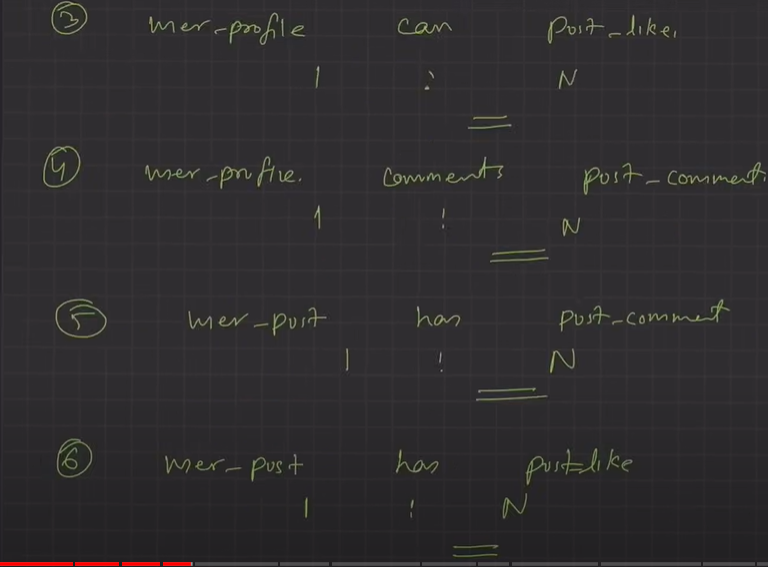 ③ user-profile can post-like.
1 : N
④ user-profile. comments post-comment.
1 : N
⑤ user-post has post-comment
1 : N
⑥ user-post has post-like
1 : N